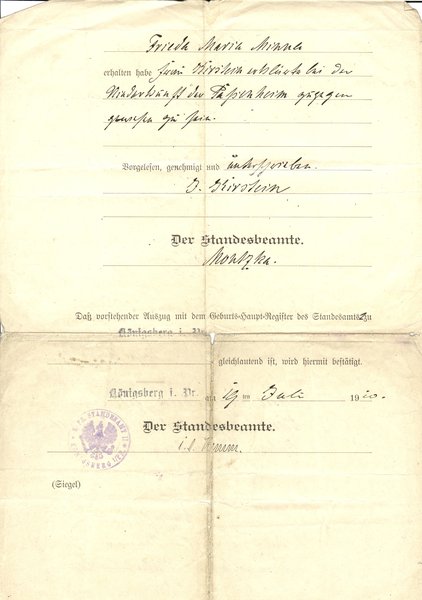 Frieda Maria Minna
erhalten habe. Frau Kirstein erklärte bei der
Niederkunft der Papenheim zugegen
gewesen zu sein.
Vorgelesen, genehmigt und unterschrieben.
Kirstein
Der Standesbeamte.
Daß vorstehender Auszug mit dem Geburts-Haupt-Register des Standesamts 2 zu
Königsberg i. Pr.
gleichlautend ist, wird hiermit bestätigt.
Königsberg i. Pr. am 19 ten Juli 1910.
Der Standesbeamte.
STANDESAMT II
KÖNIGSBERG i/Pr.
(Siegel)